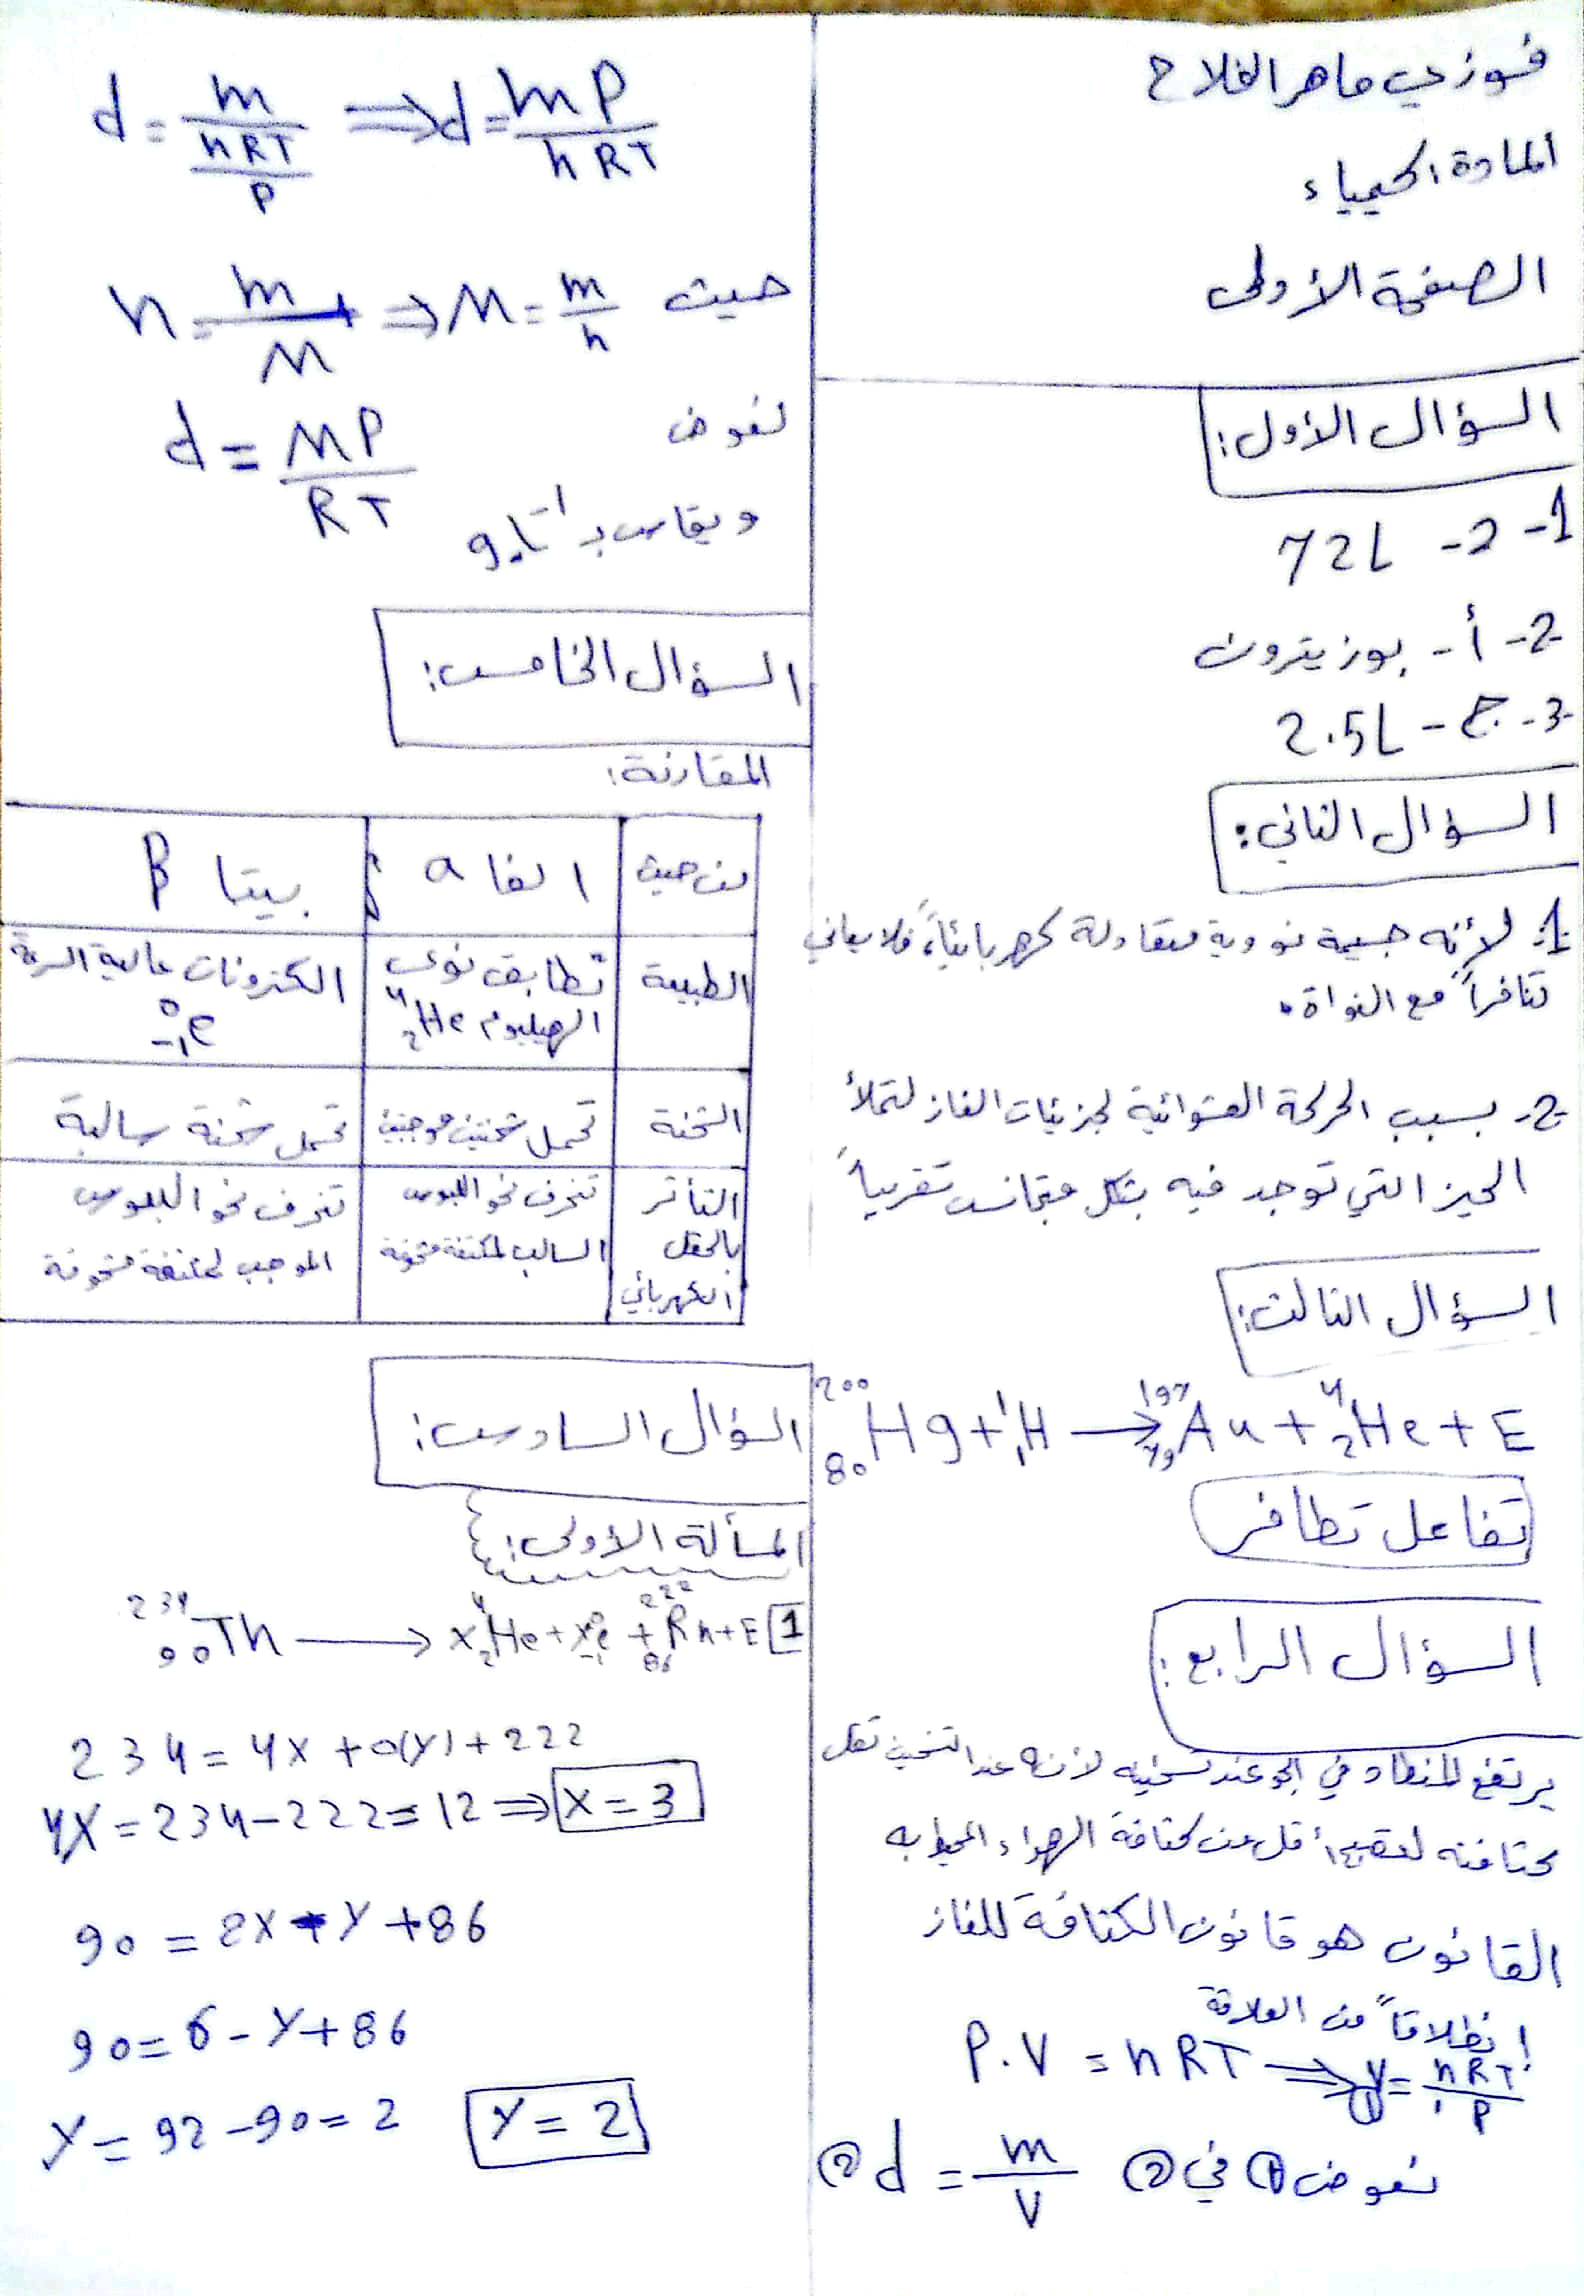 فوزي ماهر الفلاح
المادة: الكيمياء
الصفحة الأولى
السؤال الأول:
1- 2- 72L
2- أ- بوزيترون
3- ج- 2.5L
السؤال الثاني:
1- لأنه جسيمة نووية متعادلة كهربائياً، فلا يعاني
تنافراً مع النواة.
2- بسبب الحركة العشوائية لجزيئات الغاز لتملأ
الحيز التي توجد فيه بشكل متجانس تقريباً
السؤال الثالث:
²⁰⁰₈₀Hg + ¹₁H → ¹⁹⁷₇₉Au + ⁴₂He + E
تفاعل تطافر
السؤال الرابع:
يرتفع المنطاد في الجو عند تسخينه لأنه عند التسخين تقل
كثافته لتصبح أقل من كثافة الهواء المحيط به
القانون هو قانون الكثافة للغاز
انطلاقاً من العلاقة
P.V = nRT ⟹ V = nRT/P ①
نعوض ① في ② d = m/V ②
d = m/(nRT/P) ⟹ d = mP/nRT
حيث n = m/M ⟹ M = m/n
نعوض
d = MP/RT
ويقاس بـ g.L⁻¹
السؤال الخامس:
المقارنة:
من حيث | الفا α | بيتا β
الطبيعة | تطابق نوى الهيليوم ⁴₂He | الكترونات عالية السرعة ⁰₋₁e
الشحنة | تحمل شحنتين موجبتين | تحمل شحنة سالبة
التأثر بالحقل الكهربائي | تنحرف نحو اللبوس السالب لمكثفة مشحونة | تنحرف نحو اللبوس الموجب لمكثفة مشحونة
السؤال السادس:
المسألة الأولى:
1 ²³⁴₉₀Th → x⁴₂He + y⁰₋₁e + ²²²₈₆Rn + E
234 = 4x + 0(y) + 222
4x = 234 - 222 = 12 ⟹ x = 3
90 = 2x - y + 86
90 = 6 - y + 86
y = 92 - 90 = 2 y = 2